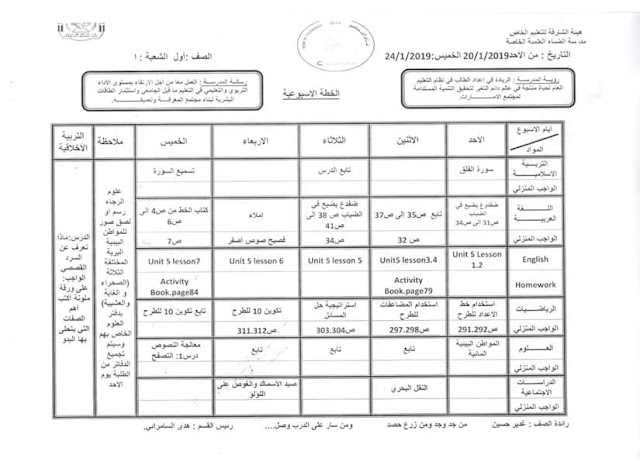 هيئة الشارقة للتعليم الخاص
مدرسة الضياء العلمية الخاصة
التاريخ : من الأحد20/1/2019 الخميس:24/1/2019
الصف :أول الشعبية : ١
رؤية المدرسة : الريادة في اعداد الطالب في نظام التعليم
العام لحياة منتجة في عالم دائم التغير لتحقيق التنمية المستدامة
لمجتمع الامـــارات.
الخطة الاسبوعية
رسالة المدرسة : العمل معا من اجل الارتقاء بمستوى الاداء
التربوي والتعليمي في التعليم ما قبل الجامعي واستثمار الطاقات
البشرية لبناء مجتمع المعرفة
ايام الاسبوع
المواد
الاحد
الاثنين
الثلاثاء
الاربعاء
الخميس
ملاحظة
التربية
الاخلاقية
التربــية
الاسلامية
سورة الفلق
تابع الدرس
تسميع السورة
الواجب المنزلي
اللـــغة
العربية
ضفدوع يضيع في
الضباب
ص31 الى ص34
تابع ص35 الى ص37
ضفدع يضيع في
الضباب ص 38 الى
ص41
املاء
كتاب الخط من ص4 الى
ص6
الواجب المنزلي
ص 32
ص34
فصيح صوص أصفر
ص7
English
Unit 5 Lesson
1.2
Unit 5 lesson3.4
Unit 5 lesson 5
Unit 5 lesson 6
Unit 5 lesson7
Homework
Activity
Book.page79
Activity
Book.page84
الرياضيات
استخدام خط
الاعداد للطرح
استخدام المضاعفات
للطرح
استراتيجية حل
المسائل
تكوين 10 للطرح
تابع تكوين 10 للطرح
الواجب المنزلي
ص291.292
ص297.298
ص303.304
ص311.312
العـــلوم
المواطن البيئية
المائية
تابع
تابع
تابع
معالجة النصوص
درس1: التصفح
الواجب المنزلي
الدراسات
الاجتماعية
النقل البحري
صيد الاسماك والغوص على
اللؤلؤ
الواجب المنزلي
علوم
الرجاء
رسم أو
لصق صور
للمواطن
البيئية
البرية
المختلفة
الثلاثة
(الصحراء
و الغابة
والعشبية)
بدفتر
العلوم
الخاص بهم
وسيتم
تجميع
الدفاتر من
الطلبة يوم
الاحد
الدرس:ماذا
نعرف عن
السرد
القصصي
الواجب:
على ورقة
ملونة اكتب
اهم
الصفات
التي يتحلى
بها البدو
رائدة الصف : غدير حسين
من جد وجد ومن زرع حصد
ومن سار على الدرب وصل....
رئيس القسم : هدى السامرائي.